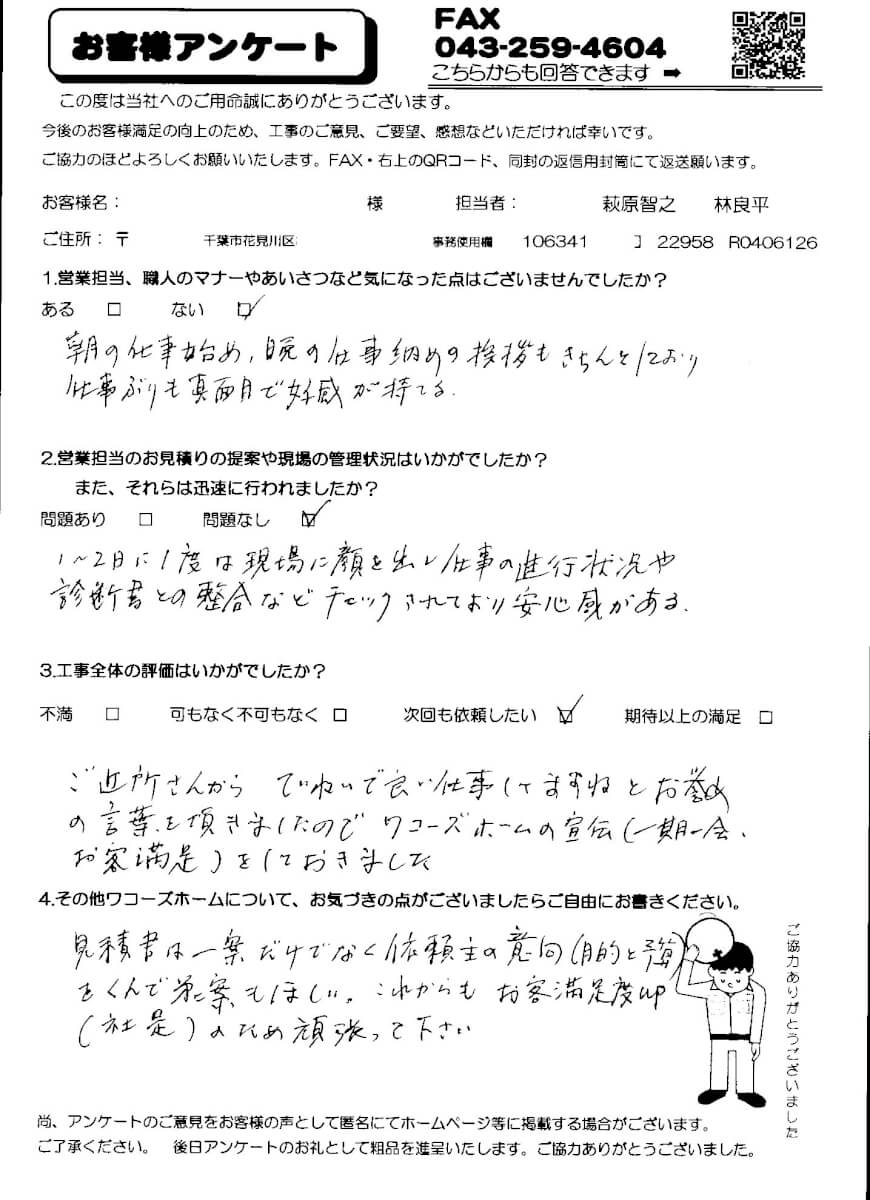 お客様アンケート
FAX
043-259-4604
こちらからも回答できます ➡
この度は当社へのご用命誠にありがとうございます。
今後のお客様満足の向上のため、工事のご意見、ご要望、感想などいただければ幸いです。
ご協力のほどよろしくお願いいたします。FAX・右上のQRコード、同封の返信用封筒にて返送願います。
お客様名： 様 担当者： 萩原智之 林良平
ご住所：〒 千葉市花見川区 事務使用欄 106341 22958 R0406126
1.営業担当、職人のマナーやあいさつなど気になった点はございませんでしたか？
ある □ ない ☑
朝の仕事始め、晩の仕事納めの挨拶もきちんとしており
仕事ぶりも真面目で好感が持てる.
2.営業担当のお見積りの提案や現場の管理状況はいかがでしたか？
また、それらは迅速に行われましたか？
問題あり □ 問題なし ☑
1～2日に1度は現場に顔を出し仕事の進行状況や
診断書との整合などチェックされており安心感がある.
3.工事全体の評価はいかがでしたか？
不満 □ 可もなく不可もなく □ 次回も依頼したい ☑ 期待以上の満足 □
ご近所さんから ていねいで良い仕事してますねとお誉め
の言葉を頂きましたのでワコーズホームの宣伝(一期一会、
お客満足)をしておきました
4.その他ワコーズホームについて、お気づきの点がございましたらご自由にお書きください。
見積書は一案だけでなく依頼主の意向(目的と
をくんで第二案もほしい。これからもお客満足度up
(社是)のため頑張って下さい
ご協力ありがとうございました
尚、アンケートのご意見をお客様の声として匿名にてホームページ等に掲載する場合がございます。
ご了承ください。 後日アンケートのお礼として粗品を進呈いたします。ご協力ありがとうございました。